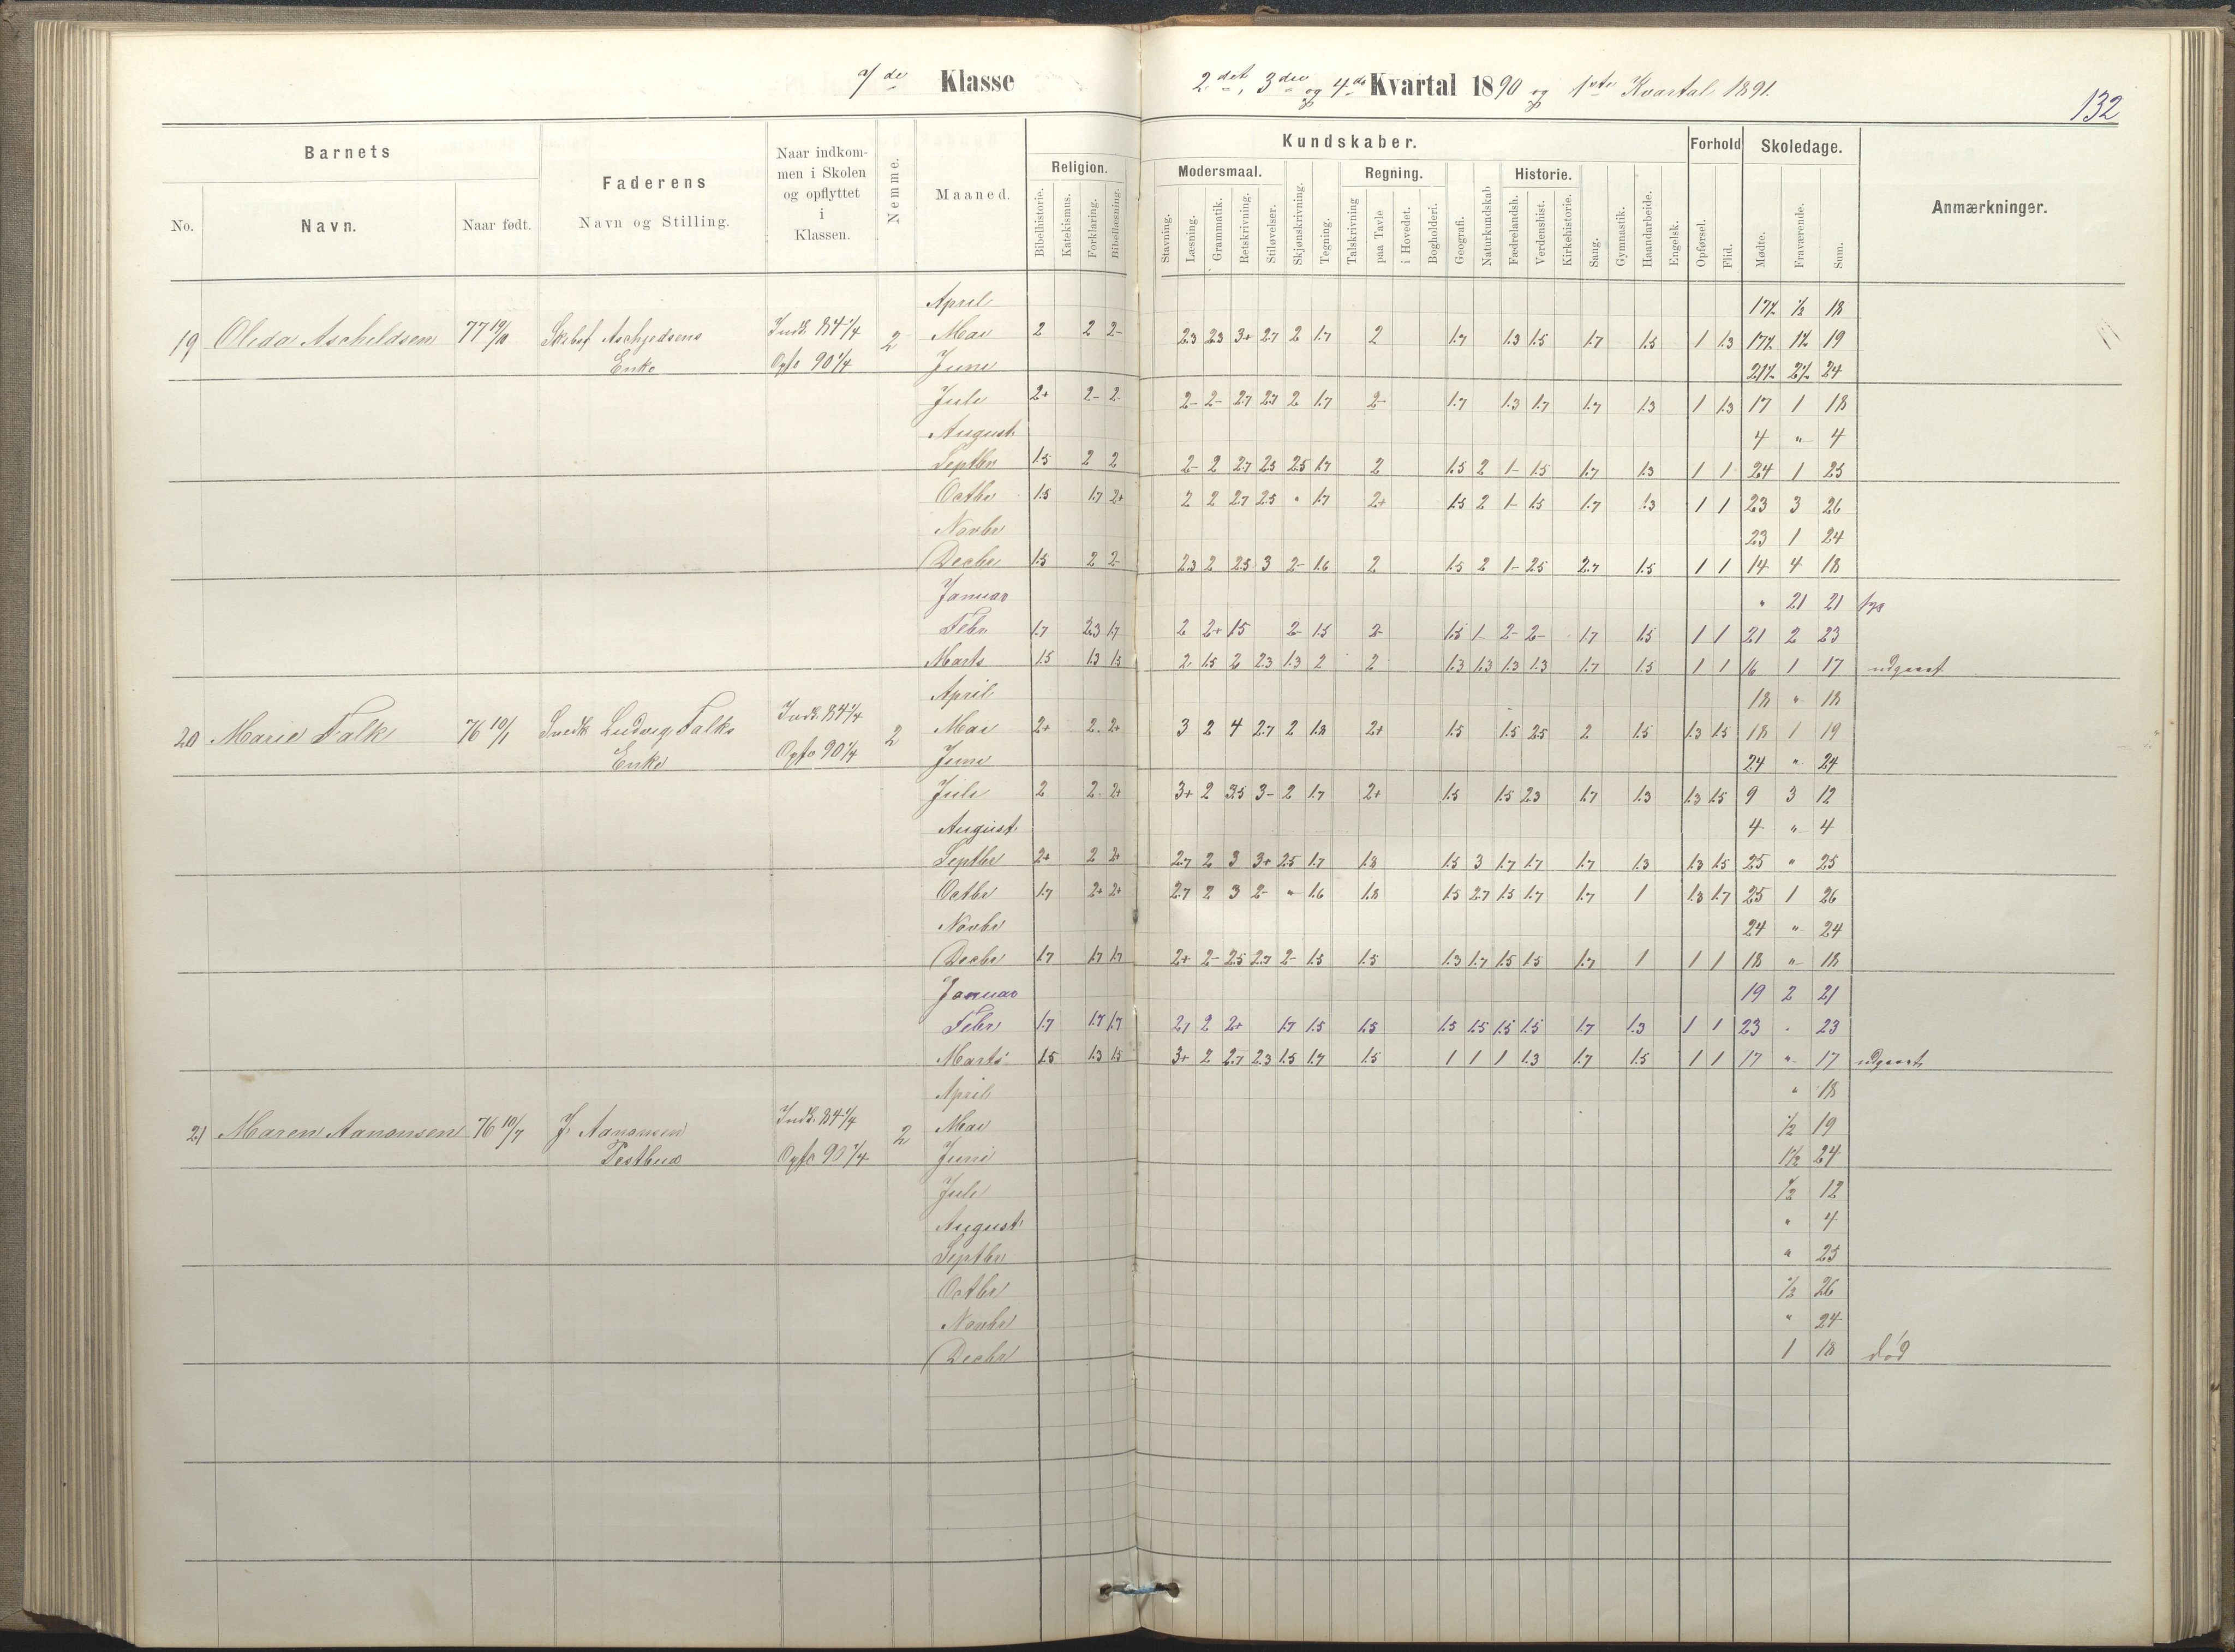 7de Klasse 2det, 3die og 4de Kvartal 1890 og 1ste Kvartal 1891.
132
Barnets Faderens Naar indkommen i Skolen og opflyttet i Klassen. Nemme. Maaned. Kundskaber. Forhold Skoledage. Anmærkninger.
Religion. Modersmaal. Regning. Historie.
No. Navn. Naar født. Navn og Stilling. Bibelhistorie. Katekismus. Forklaring. Bibellæsning. Stavning. Læsning. Grammatik. Retskrivning. Stiløvelser. Skjønskrivning. Tegning. Talskrivning paa Tavle i Hovedet. Bogholderi. Geografi. Naturkundskab Fædrelandsh. Verdenshist. Kirkehistorie. Sang. Gymnastik. Haandarbeide. Engelsk. Opførsel. Flid. Mødte. Fraværende. Sum.
April 17½ ½ 18
19 Oleda Ascheldsen 77 Aschjedsens Indk. 84 1/4 2 Mai 2 2 2- 2.3 2.3 3+ 2.7 2 1.7 2 1.7 1.3 1.5 1.7 1.5 1 1.3 17½ 1½ 19
Enke Opfl 90 1/4 Juni 21½ 2½ 24
Juli 2+ 2- 2- 2- 2- 2.7 2.7 2 1.7 2- 1.7 1.3 1.7 1.7 1.3 1 1.3 17 1 18
August 4 " 4
Septbr 1.5 2 2 2- 2 2.7 2.5 2.5 1.7 2 1.5 2 1- 1.5 1.7 1.3 1 1 24 1 25
Octbr 1.5 1.7 2+ 2 2 2.7 2.5 " 1.7 2+ 1.5 2 1- 1.5 1.7 1.3 1 1 23 3 26
Novbr 23 1 24
Decbr 1.5 2 2- 2.3 2 2.5 3 2- 1.6 2 1.5 2 1- 2.5 2.7 1.5 1 1 14 4 18
Januar " 21 21 syg
Febr 1.7 2.3 1.7 2 2+ 1.5 2- 1.5 2- 1.5 1- 2- 2- 1.7 1.5 1 1 21 2 23
Marts 1.5 1.3 1.5 2 1.5 2 2.3 1.3 2 2 1.3 1.3 1.3 1.3 1.7 1.5 1 1 16 1 17 udgaat
April 18 " 18
20 Marie Falk 76 10/1 Snedk Ludvig Falks Indk. 84 1/4 2 Mai 2+ 2- 2+ 3 2 4 2.7 2 1.8 2+ 1.5 1.5 2.5 2 1.5 1.3 1.5 18 1 19
Enke Opfl 90 1/4 Juni 24 " 24
Juli 2 2- 2+ 3+ 2 3.5 3- 2 1.7 2+ 1.5 1.5 2.3 1.7 1.3 1.3 1.5 9 3 12
August 4 " 4
Septbr 2+ 2 2+ 2.7 2 3 3+ 2.5 1.7 1.8 1.5 3 1.7 1.7 1.7 1.3 1.3 1.5 25 " 25
Octbr 1.7 2+ 2+ 2.7 2 3 2- " 1.6 1.8 1.5 2.7 1.5 1.7 1.7 1 1.3 1.7 25 1 26
Novbr 24 " 24
Decbr 1.7 1.7 1.7 2+ 2- 2.5 2.7 2- 1.5 1.5 1.3 1.7 1.5 1.5 1.7 1 1 1 18 " 18
Januar 19 2 21
Febr 1.7 1.7 1.7 2.7 2 2+ 1.7 1.5 1.5 1.5 1.5 1.5 1.5 1.7 1.3 1 1 23 " 23
Marts 1.5 1.3 1.5 3+ 2 2.7 2.3 1.5 1.7 1.5 1 1 1 1.3 1.7 1.5 1 1 17 " 17 udgaat
April " 18
21 Maren Aanonsen 76 10/7 J. Aanonsen Indk. 84 1/4 2 Mai ½ 19
Postbud Opfl 90 1/4 Juni 1½ 24
Juli ½ 12
August " 4
Septbr " 25
Octbr ½ 26
Novbr " 24
Decbr 1 18 død